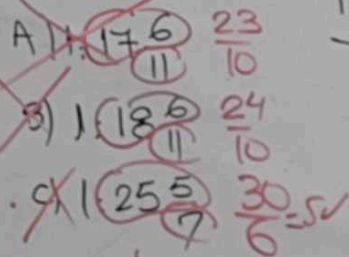 A) 1. 17 6/11 23/10
B) 1. 18 6/11 24/10
C) 1 25 5/7 30/6 = 5 ✓